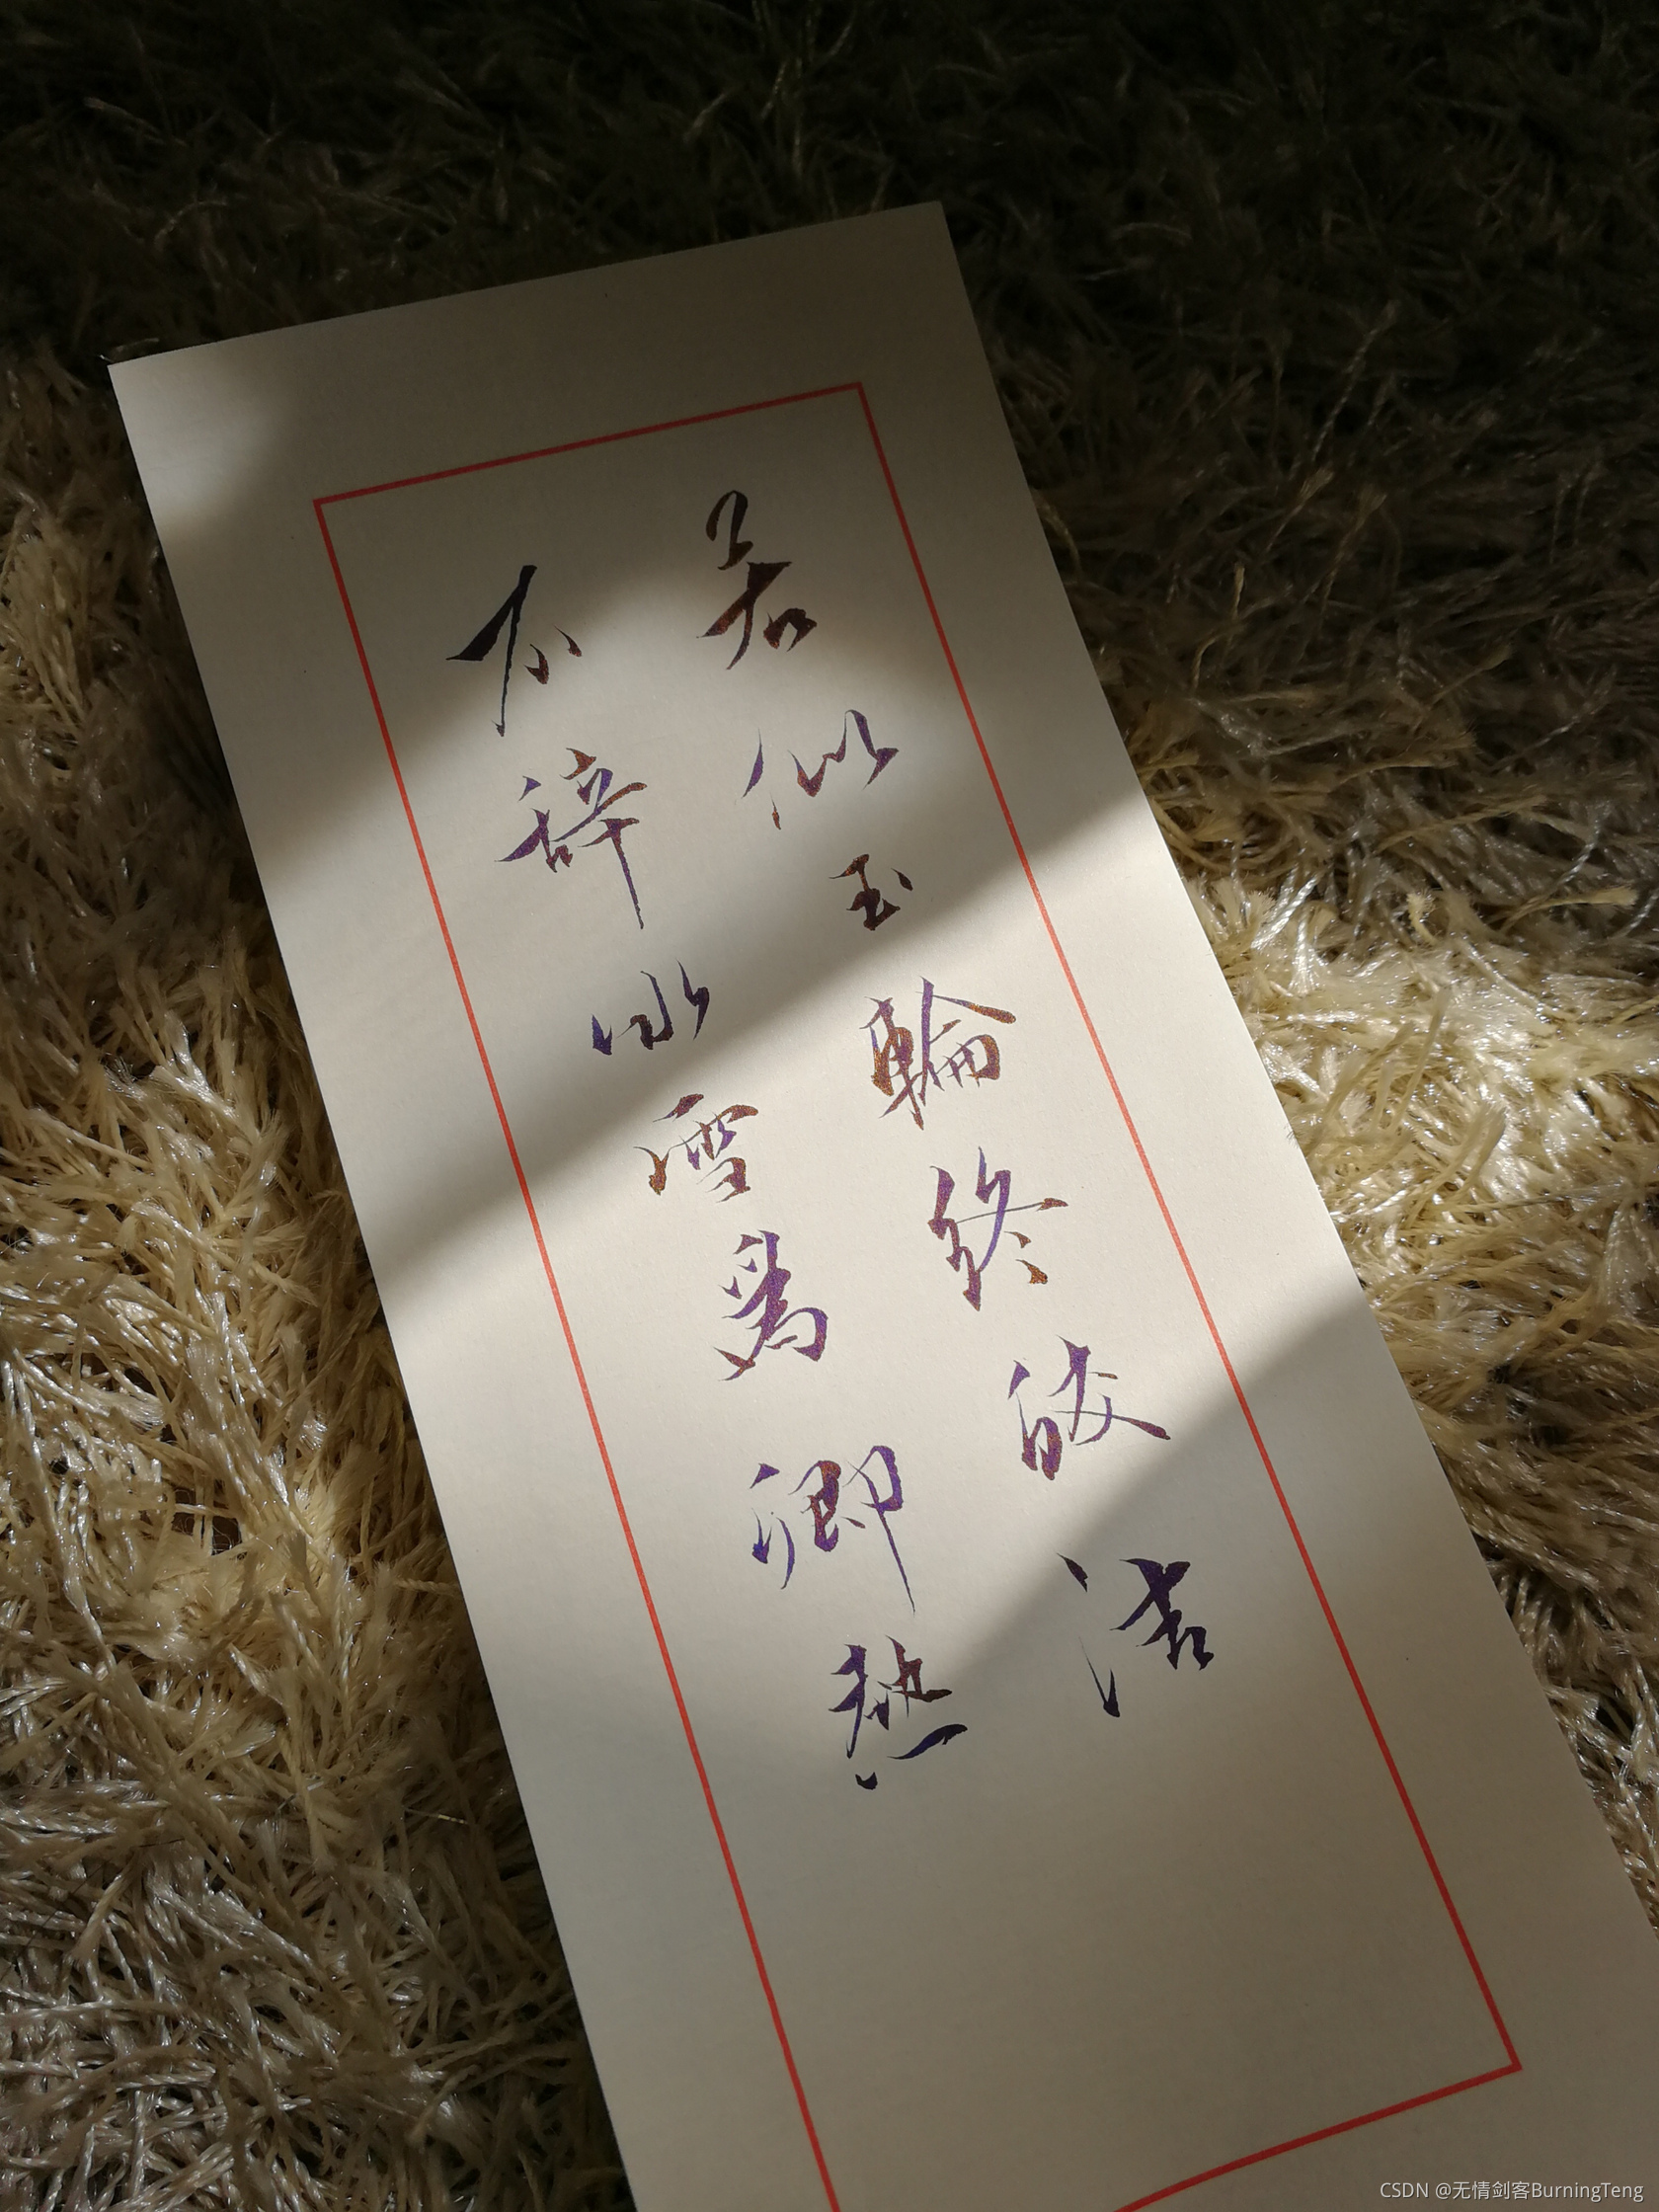 若似玉輪終皎潔
不辞冰雪為卿熱
CSDN @无情剑客BurningTeng